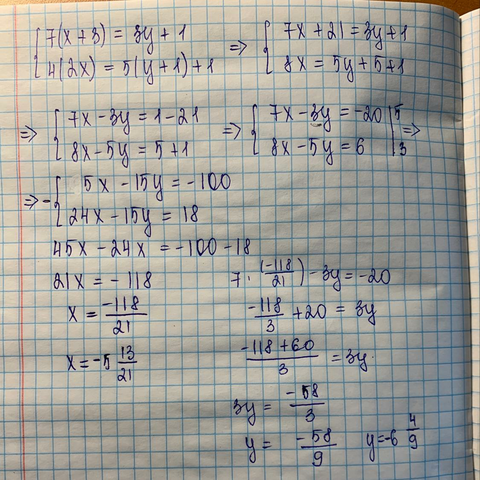 { 7(x+3) = 3y+1
4(2x) = 5(y+1)+1 => { 7x+21 = 3y+1
8x = 5y+5+1
=> { 7x-3y = 1-21
8x-5y = 5+1 => { 7x-3y = -20 | 5
8x-5y = 6 | 3 =>
=> - { 5x -15y = -100
24x -15y = 18
45x -24x = -100-18
21x = -118
x = -118/21
x = -5 13/21
7 · (-118/21) -3y = -20
-118/3 +20 = 3y
-118+60/3 = 3y
3y = -58/3
y = -58/9 y=-6 4/9